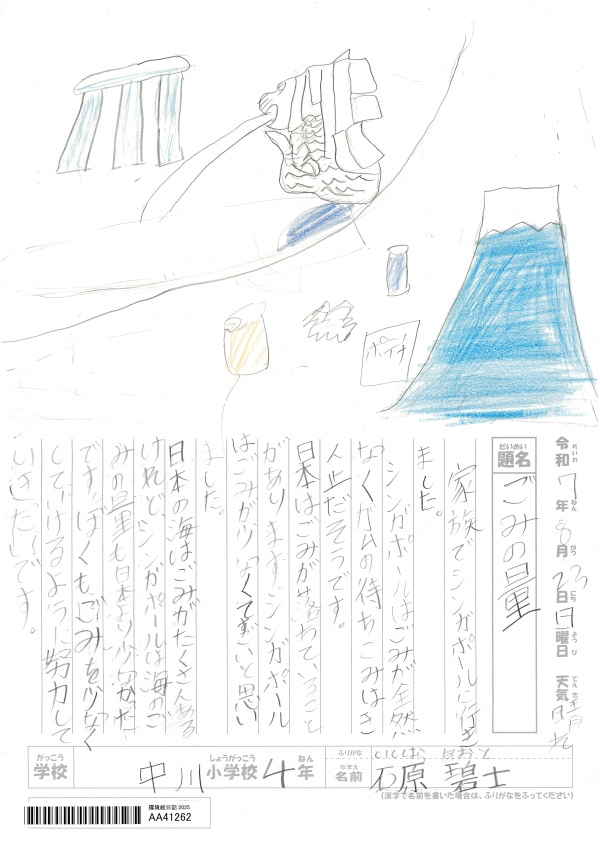 ポテチ
令和7年8月23日日曜日 天気 晴れ
れいわ ねん がつ にち ようび てんき
だいめい
題名
ごみの量
家族でシンガポールに行き
ました。
シンガポールはごみが全然
なくガムの持ちこみはき
ん止だそうです。
日本はごみが落ちていること
があります。シンガポール
はごみが少なくてすごいと思い
ました。
日本の海はごみがたくさんある
けれど、シンガポールは海のご
みの量も日本より少なかった
です。ぼくもごみを少なく
していけるように努力して
いきたいです。
がっこう しょうがっこう ねん
学校 中川小学校4年
ふりがな いしはら あおと
なまえ
名前 石原 碧士
(漢字で名前を書いた場合は、ふりがなをふってください)
環境絵日記 2025
AA41262